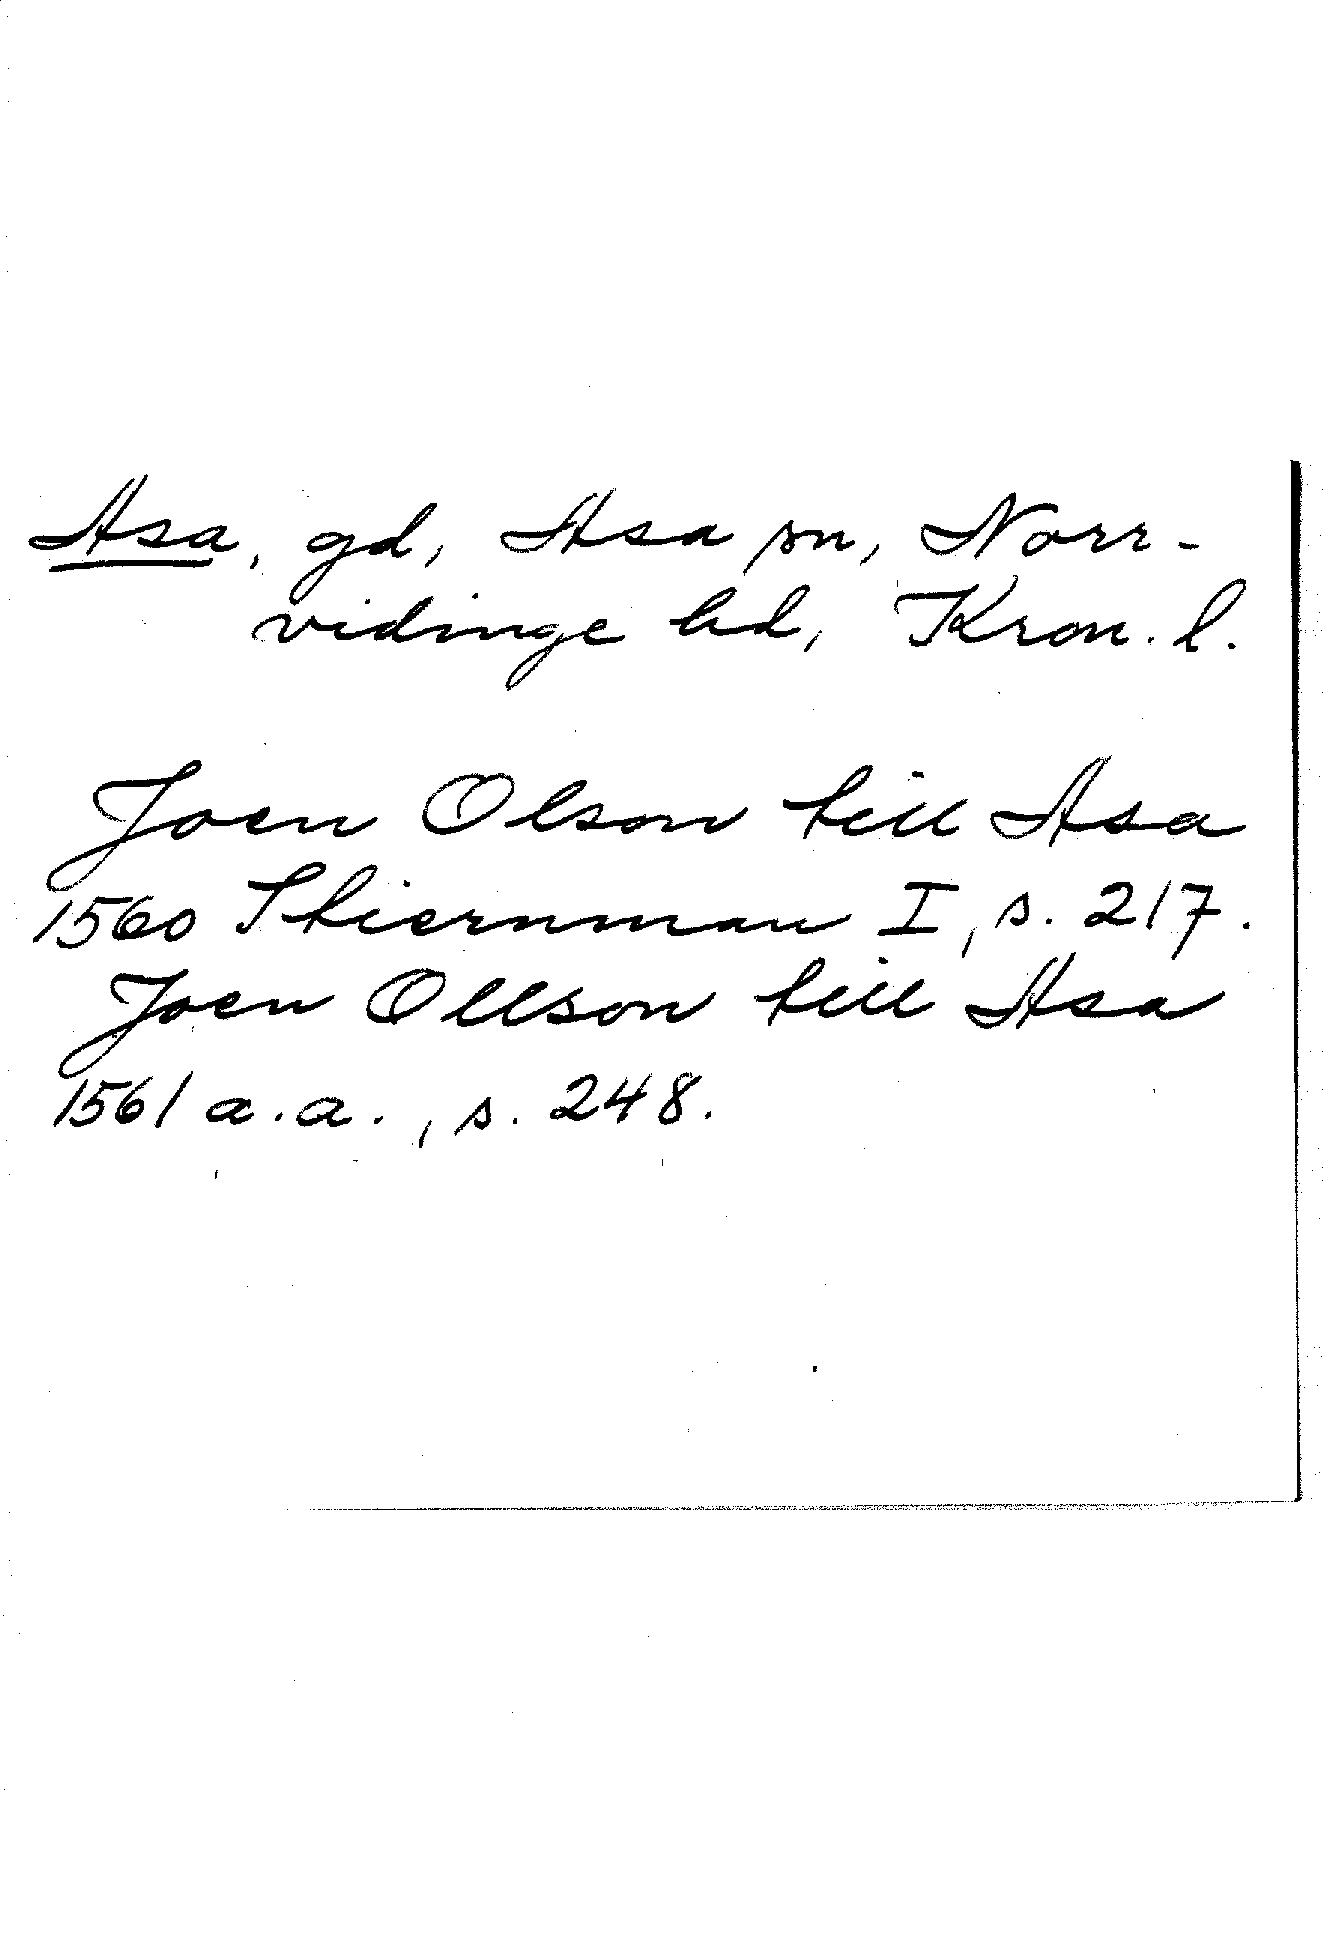 Asa, gd, Asa sn, Norr-
vidinge hd, Kron. l.
Joen Olson till Asa
1560 Stiernman I, s. 217.
Joen Ollson till Asa
1561 a.a., s. 248.